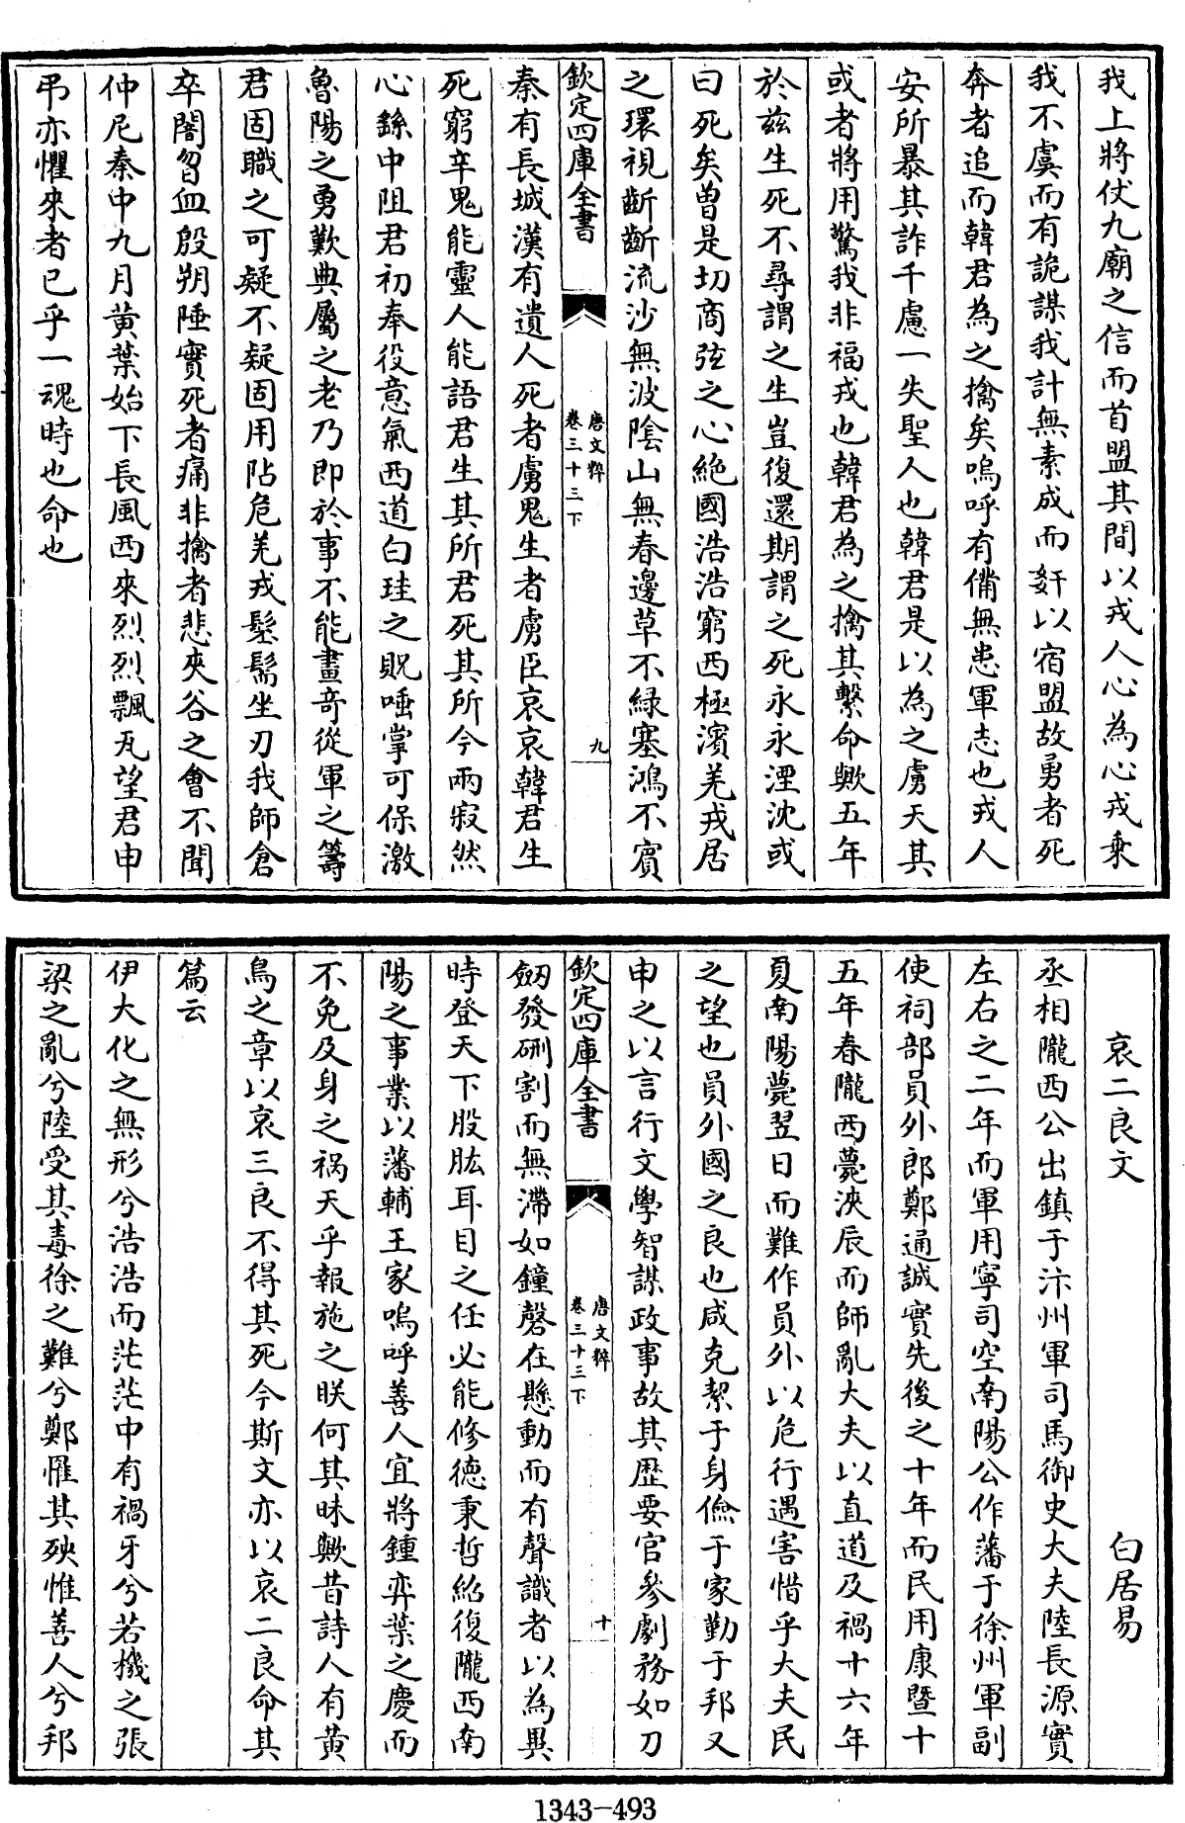 我上將仗九廟之信而首盟其間以戎人心為心戎乘
我不虞而有詭謀我計無素成而姧以宿盟故勇者死
奔者追而韓君為之擒矣嗚呼有備無患軍志也戎人
安所暴其詐千慮一失聖人也韓君是以為之虜天其
或者將用驚我非福戎也韓君為之擒其繫命歟五年
於兹生死不尋謂之生豈復還期謂之死永永湮沈或
曰死矣曾是切商弦之心絶國浩浩窮西極濱羌戎居
之環視齗齗流沙無波陰山無春邊草不緑塞鴻不賓
欽定四庫全書
唐文粹
卷三十三下
九
秦有長城漢有遺人死者虜鬼生者虜臣哀哀韓君生
死窮辛鬼能靈人能語君生其所君死其所今兩寂然
心繇中阻君初奉役意氣西道白珪之貺唾掌可保激
魯陽之勇歎典屬之老乃即於事不能畫奇從軍之籌
君固職之可疑不疑固用阽危羌戎髽鬝坐刃我師倉
卒闇曶血殷朔陲實死者痛非擒者悲夾谷之會不聞
仲尼秦中九月黄葉始下長風西來烈烈飄瓦望君申
弔亦懼來者已乎一魂時也命也
哀二良文 白居易
丞相隴西公出鎮于汴州軍司馬御史大夫陸長源實
左右之二年而軍用寧司空南陽公作藩于徐州軍副
使祠部員外郎鄭通誠實先後之十年而民用康暨十
五年春隴西薨浹辰而師亂大夫以直道及禍十六年
夏南陽薨翌日而難作員外以危行遇害惜乎大夫民
之望也員外國之良也咸克絜于身儉于家勤于邦又
申之以言行文學智謀政事故其歴要官參劇務如刀
欽定四庫全書
唐文粹
卷三十三下
十
劒發硎割而無滯如鐘磬在懸動而有聲識者以為異
時登天下股肱耳目之任必能修德秉哲紹復隴西南
陽之事業以藩輔王家嗚呼善人宜將鍾弈葉之慶而
不免及身之禍天乎報施之朕何其昧歟昔詩人有黄
鳥之章以哀三良不得其死今斯文亦以哀二良命其
篇云
伊大化之無形兮浩浩而茫茫中有禍牙兮若機之張
梁之亂兮陸受其毒徐之難兮鄭罹其殃惟善人兮邦
1343-493